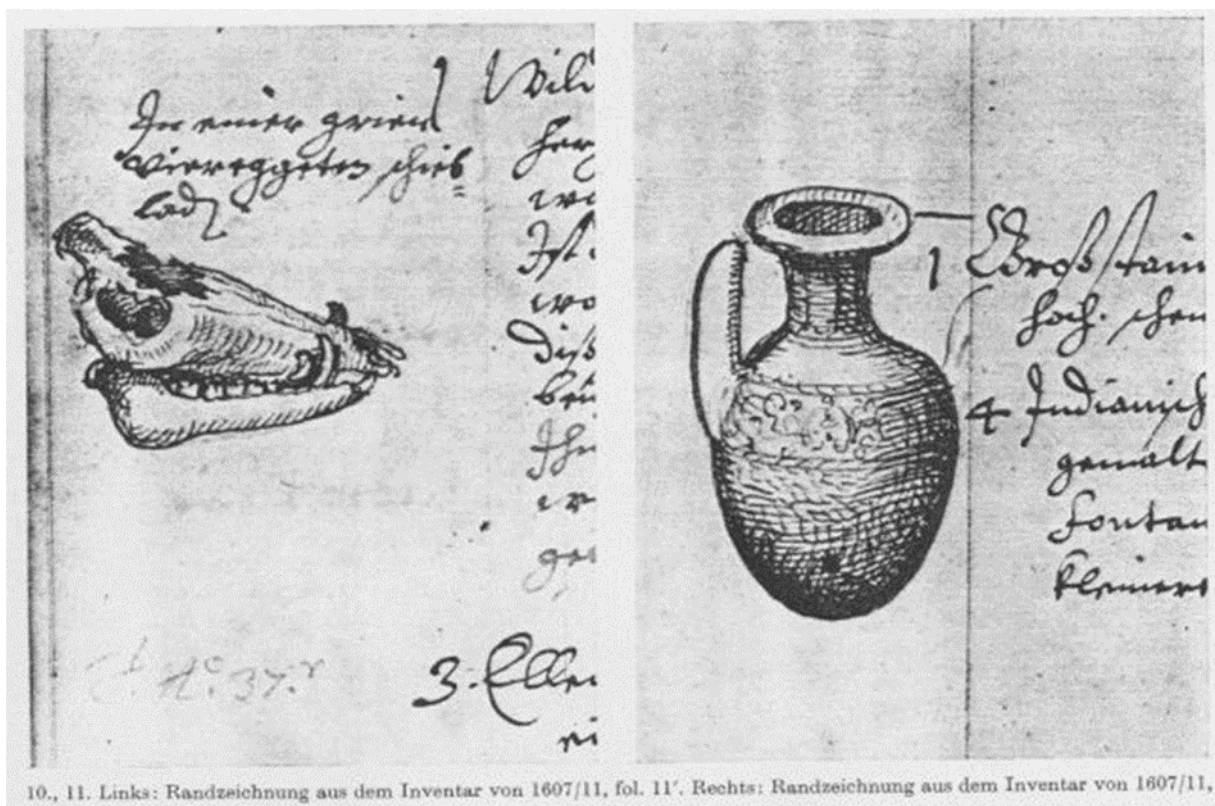 In einer grien
Viereggeten schieb
lad
1 Wild
her
wo
Ist
wo
diß
beü
Ihn
er
ge
N.° 37.
3. Ellen
ei
1 Groß stain
hoch. schen
4 Indianisch
gemalt
fontan
kleinere
10., 11. Links: Randzeichnung aus dem Inventar von 1607/11, fol. 11'. Rechts: Randzeichnung aus dem Inventar von 1607/11,